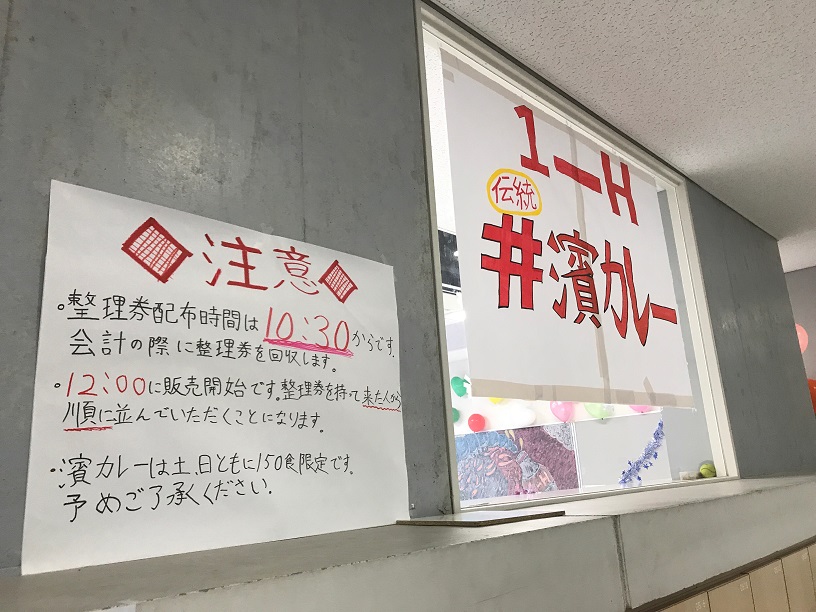 注意
・整理券配布時間は10:30からです.
会計の際に整理券を回収します。
・12:00に販売開始です。整理券を持って来た人から
順に並んでいただくことになります.
・濱カレーは土,日ともに150食限定です。
予めご了承ください.
1-H
伝統
#濱カレー